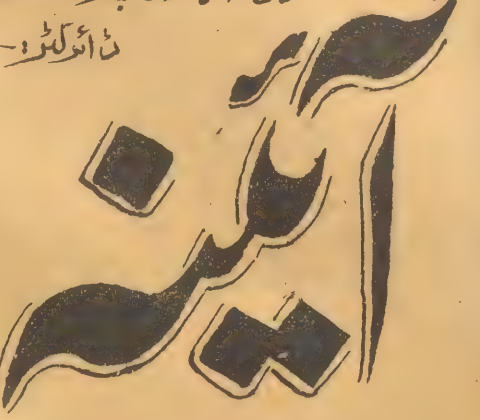 ڈائرکٹر:-
آینہ